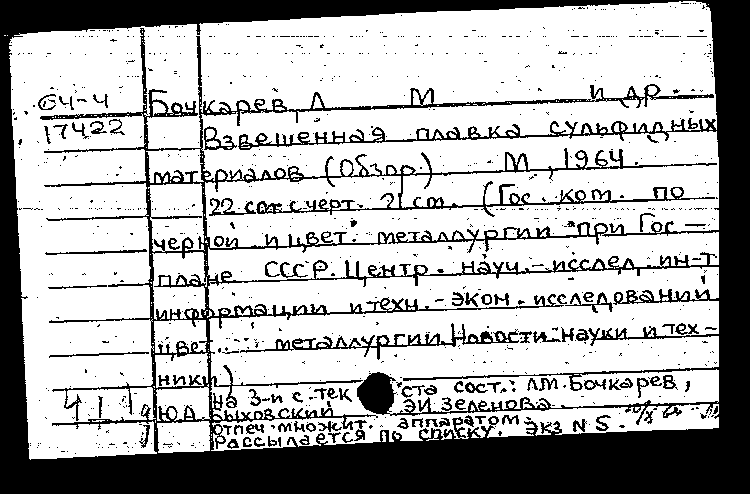 64-4
17422
Бочкарев, Л М и др.
Взвешенная плавка сульфидных
материалов (Обзор) М, 1964.
22 с. с черт. 21 см. (Гос. ком. по
черной и цвет. металлургии при Гос-
плане СССР. Центр. науч.-исслед. ин-т
информации и техн.-экон. исследований
цвет. металлургии. Новости науки и тех-
ники)
На 3-й с. тек ста сост.: Л.М. Бочкарев,
Ю.А. Быховский, Э И Зеленова.
Отпеч. множит. аппаратом.
Рассылается по списку. Экз N 5.